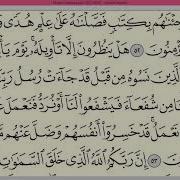 جِئْنَٰهُم بِكِتَٰبٍ فَصَّلْنَٰهُ عَلَىٰ عِلْمٍ هُدًى وَ
ؤْمِنُونَ ٥٢ هَلْ يَنظُرُونَ إِلَّا تَأْوِيلَهُۥ يَوْمَ يَأْ
الَّذِينَ نَسُوهُ مِن قَبْلُ قَدْ جَآءَتْ رُسُلُ رَبِّنَا
مِن شُفَعَآءَ فَيَشْفَعُوا۟ لَنَآ أَوْ نُرَدُّ فَنَعْمَلَ
نَعْمَلُ قَدْ خَسِرُوٓا۟ أَنفُسَهُمْ وَضَلَّ عَنْهُم مَّا
٥٣ إِنَّ رَبَّكُمُ ٱللَّهُ ٱلَّذِى خَلَقَ ٱلسَّمَٰوَٰتِ